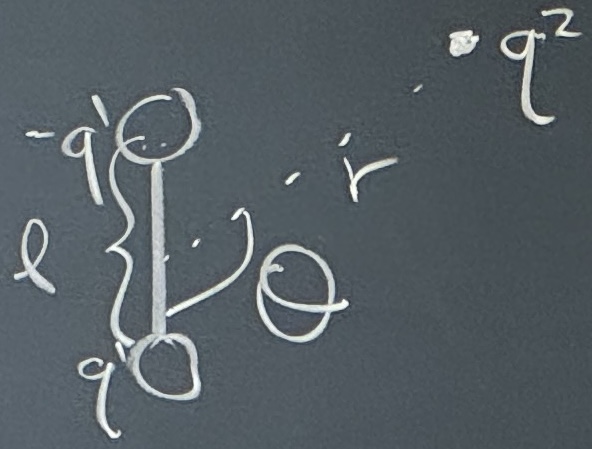 q²
-q'
r
l
θ
q'